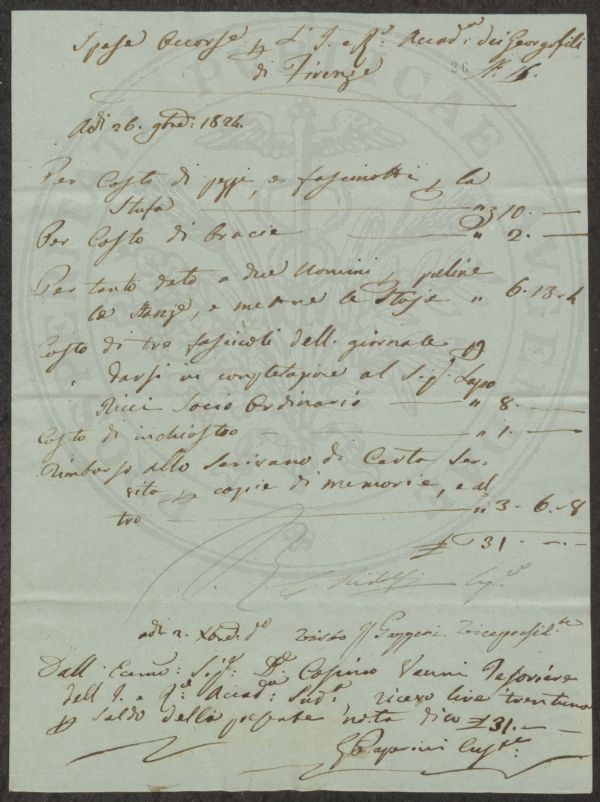 Spese Occorse p L'I. e R. Accad. dei Georgofili
di Firenze 26 N. 6.
Adi 26. 9bre: 1824.
Per Costo di pezzi, e fascinotti p la
Stufa " 10. —
Per Costo di bracie " 2. —
Per tanto dato a due Uomini p pulire
le Stanze, e mettere le Stoje " 6. 13. 4
Costo di tre fascicoli dell. giornale p
darsi in completazione al Sig. Lapo
Ricci Socio Ordinario " 8. —
Costo di inchiostro " 1. —
Rimborso allo Scrivano di Carta Ser-
vita p copie di memorie, e al
tro " 3. 6. 8
£ 31. —. —
C. Ridolfi
adi 2. Xbre. do visto
Dall. Ecmo: Sig. Dre. Cosimo Vanni Tesoriere
dell I. e R. Accad: Sud. ricevo lire trentuna
p Saldo della presente nota dico £ 31. —. —
G. Gaperini Cust.